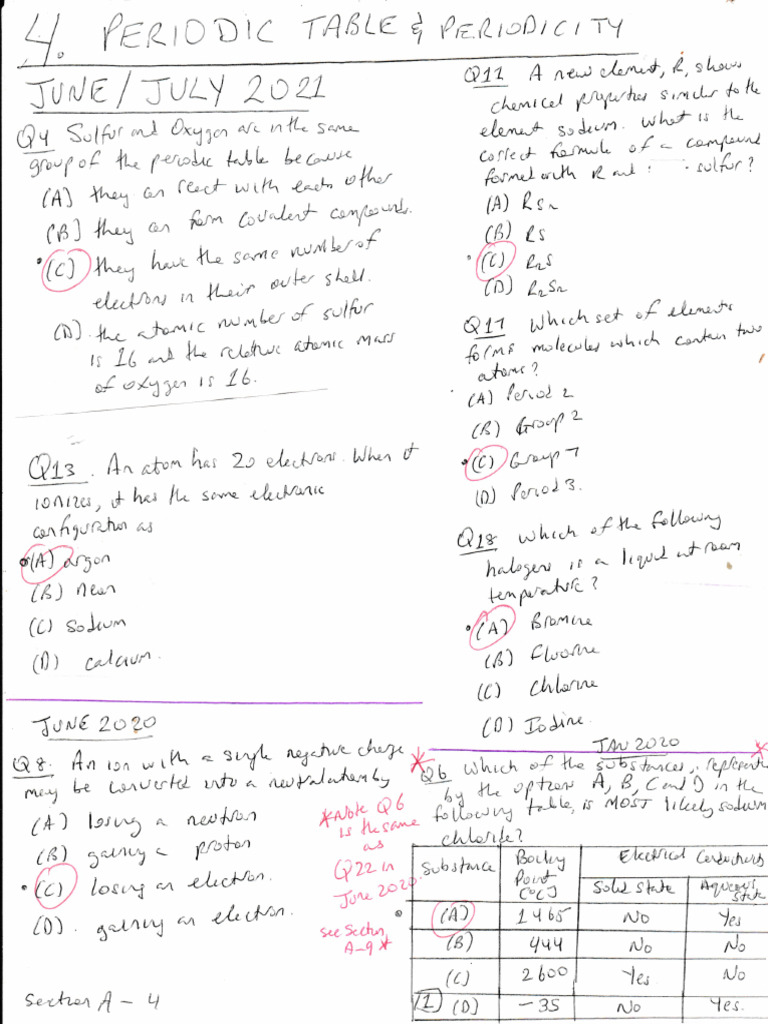 4. PERIODIC TABLE & PERIODICITY
JUNE/JULY 2021
Q4 Sulfur and Oxygen are in the same
group of the periodic table because
(A) they can react with each other
(B) they can form covalent compounds.
(C) they have the same number of
electrons in their outer shell.
(D). the atomic number of sulfur
is 16 and the relative atomic mass
of oxygen is 16.
Q13. An atom has 20 electrons. When it
ionizes, it has the same electronic
configuration as
(A) argon
(B) neon
(C) sodium
(D) calcium.
Q11 A new element, R, shows
chemical properties similar to the
element sodium. What is the
correct formula of a compound
formed with R and sulfur?
(A) RS2
(B) RS
(C) R2S
(D) R2S2
Q17 Which set of elements
forms molecules which contain two
atoms?
(A) Period 2
(B) Group 2
(C) Group 7
(D) Period 3.
Q18 Which of the following
halogens is a liquid at room
temperature?
(A) Bromine
(B) Fluorine
(C) Chlorine
(D) Iodine.
JUNE 2020
Q8. An ion with a single negative charge
may be converted into a neutral atom by
(A) losing a neutron
(B) gaining a proton
(C) losing an electron.
(D). gaining an electron.
*Note Q6
is the same
as
Q22 in
June 2020.
see Section
A-9*
JAN 2020
Q6 Which of the substances, represented
by the options A, B, C and D in the
following table, is MOST likely sodium
chloride?
Substance Boiling Point (°C) Electrical Conductivity
Solid State Aqueous State
(A) 1465 No Yes
(B) 444 No No
(C) 2600 Yes No
[1] (D) -35 No Yes.
Section A-4